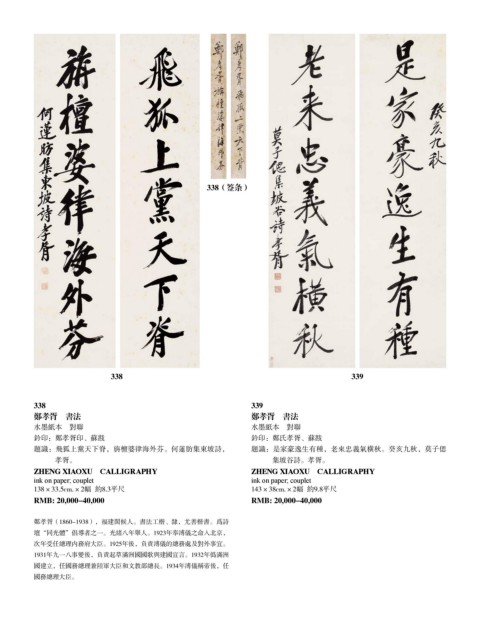 飛狐上黨天下脊
旃檀婆律海外芬
何蓮舫集東坡詩 孝胥
338（签条）
是家豪逸生有種
癸亥九秋
老来忠義氣橫秋
莫子偲集坡谷詩 孝胥
338
339
338
鄭孝胥　書法
水墨紙本　對聯
鈐印：鄭孝胥印、蘇戡
題識：飛狐上黨天下脊，旃檀婆律海外芬。何蓮舫集東坡詩，
孝胥。
ZHENG XIAOXU　CALLIGRAPHY
ink on paper; couplet
138 × 33.5cm. × 2幅　約8.3平尺
RMB: 20,000–40,000
鄭孝胥（1860–1938），福建閩候人。書法工楷、隸，尤善楷書。爲詩
壇“同光體”倡導者之一。光緒八年舉人。1923年奉溥儀之命入北京，
次年受任總理內務府大臣。1925年後，負責溥儀的總務處及對外事宜。
1931年九一八事變後，負責起草滿洲國國歌與建國宣言。1932年僞滿洲
國建立，任國務總理兼陸軍大臣和文教部總長。1934年溥儀稱帝後，任
國務總理大臣。
339
鄭孝胥　書法
水墨紙本　對聯
鈐印：鄭氏孝胥、蘇戡
題識：是家豪逸生有種，老來忠義氣橫秋。癸亥九秋，莫子偲
集坡谷詩。孝胥。
ZHENG XIAOXU　CALLIGRAPHY
ink on paper; couplet
143 × 38cm. × 2幅　約9.8平尺
RMB: 20,000–40,000